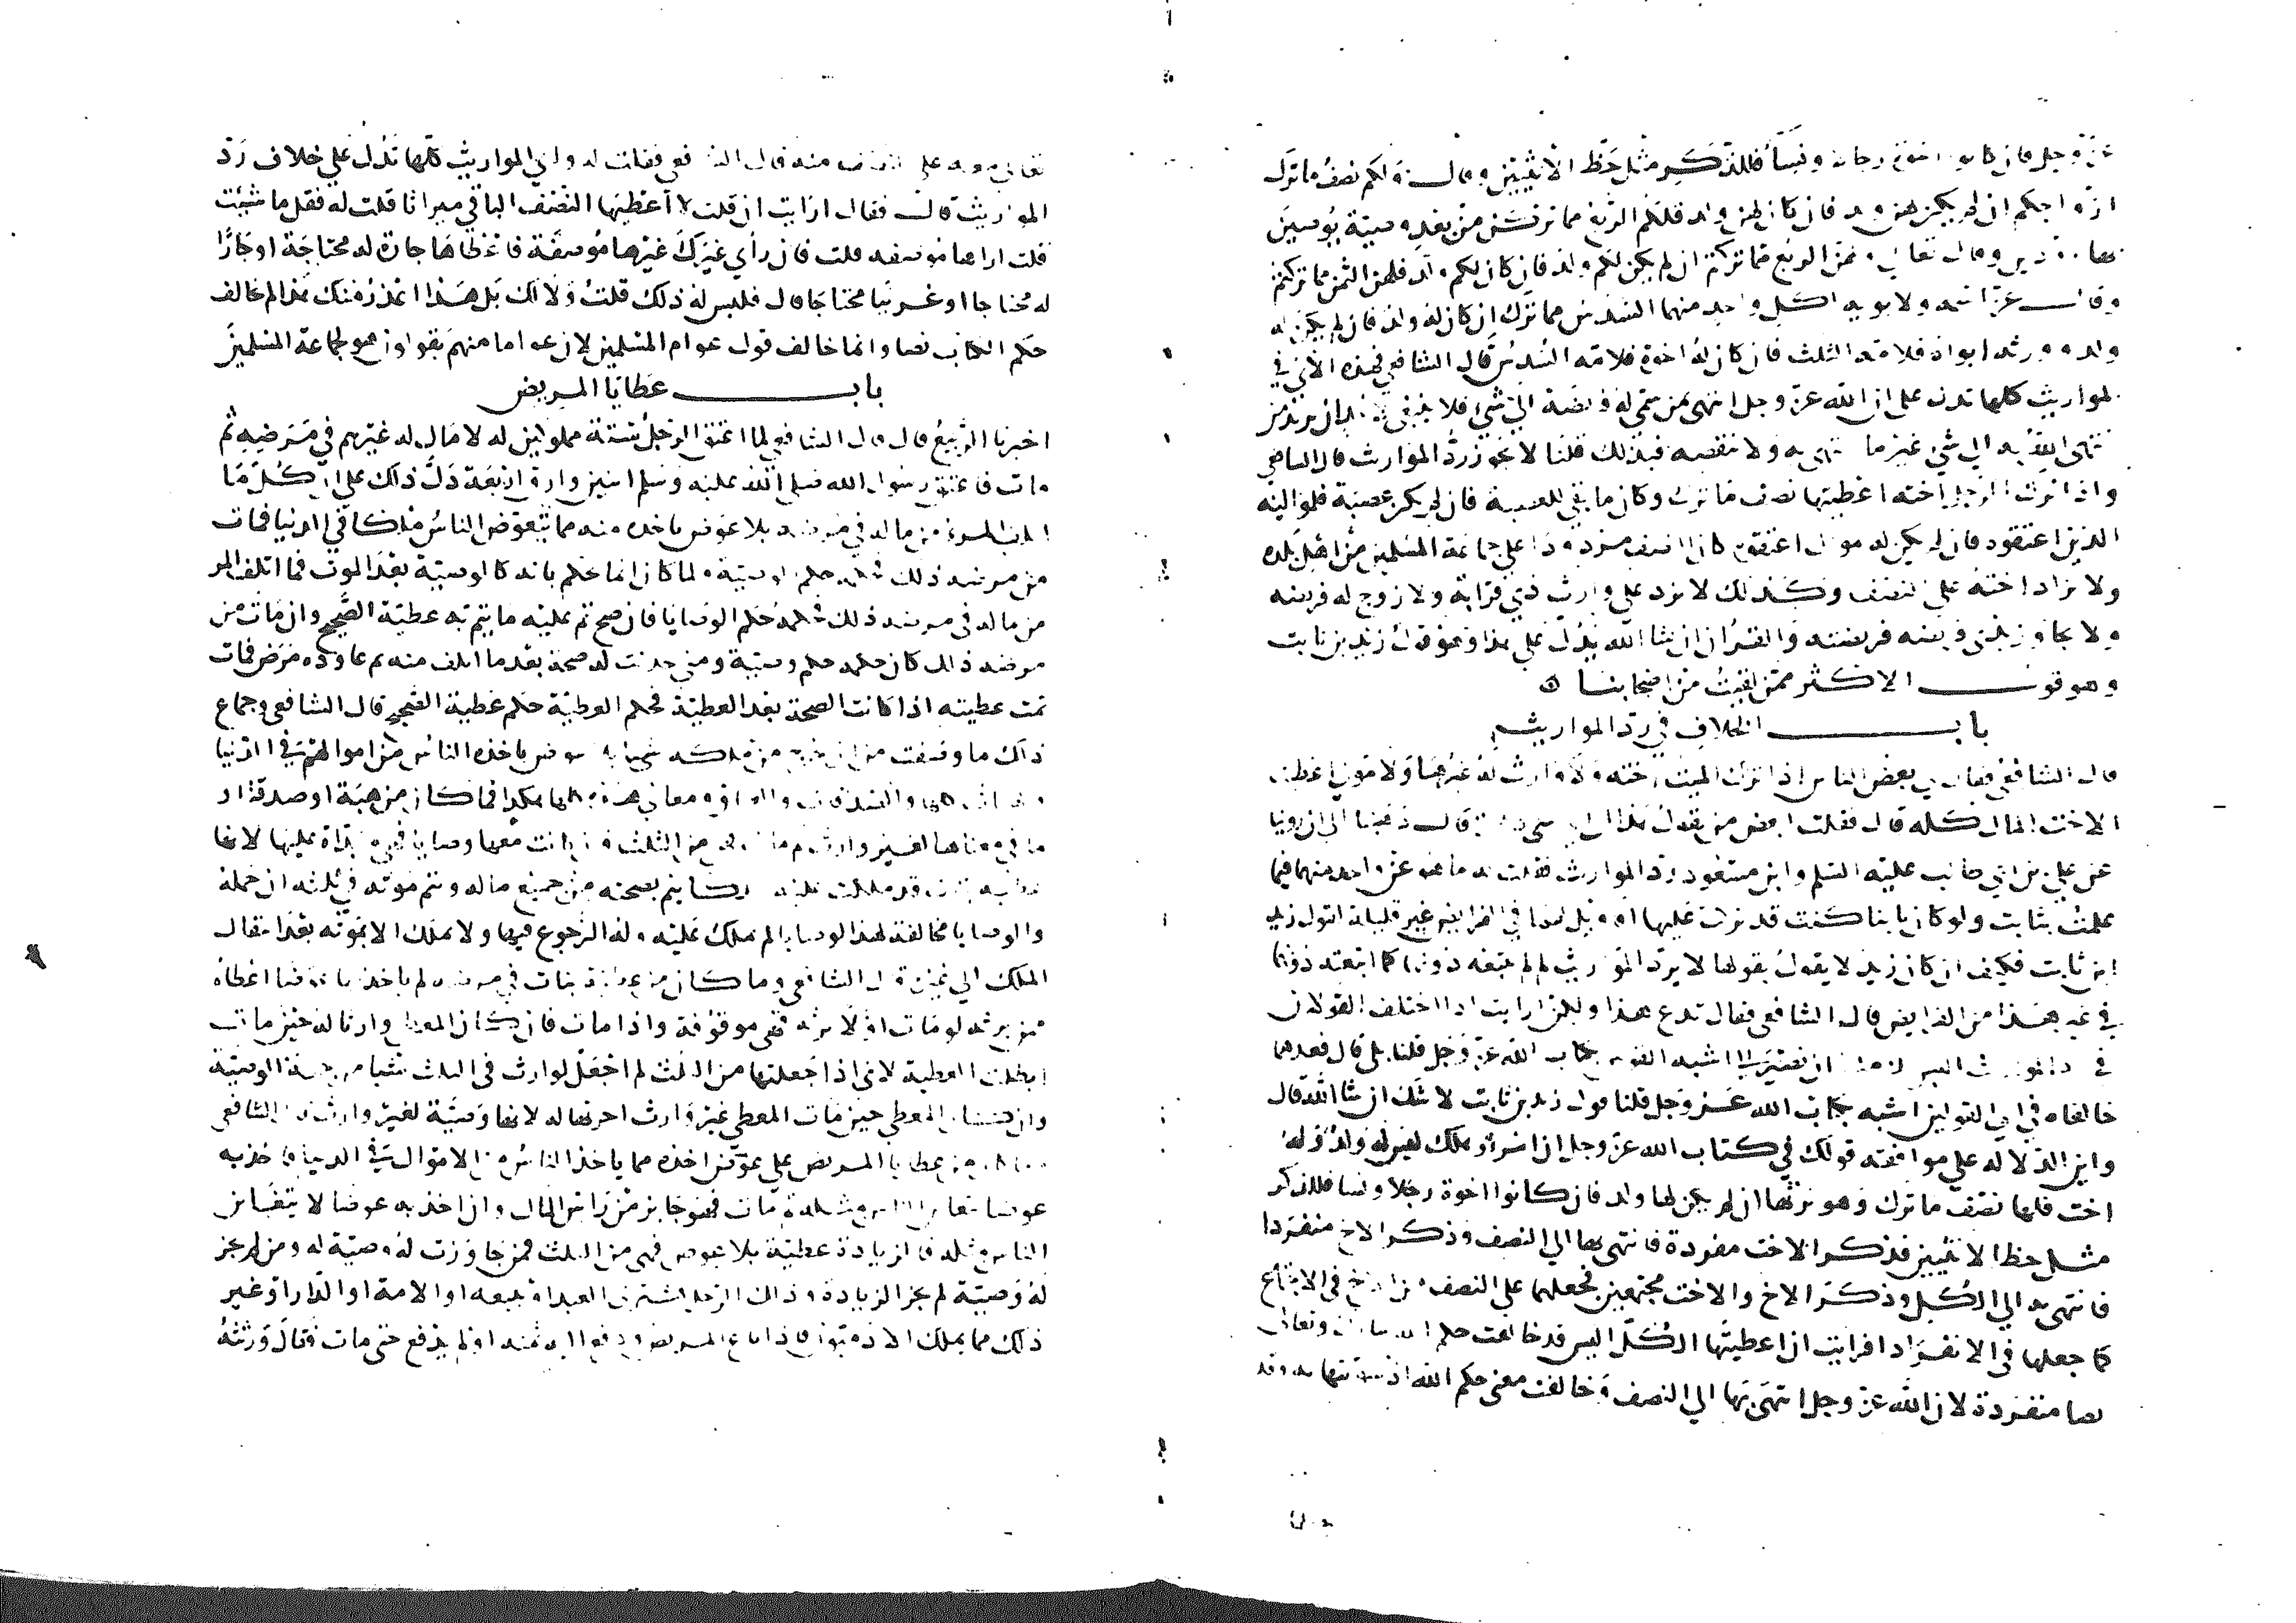 عز وجل فان كانوا اخوة رجالا ونساء فللذكر مثل حظ الانثيين وقال ولكم نصف ما ترك
ازواجكم ان لم يكن لهن ولد فان كان لهن ولد فلكم الربع مما تركن من بعد وصية يوصين
بها او دين وقال تعالى ولهن الربع مما تركتم ان لم يكن لكم ولد فان كان لكم ولد فلهن الثمن مما تركتم
وقال عز اسمه ولابويه لكل واحد منهما السدس مما ترك ان كان له ولد فان لم يكن له
ولد وورثه ابواه فلامه الثلث فان كان له اخوة فلامه السدس قال الشافعي فهذه الآي في
المواريث كلها تدل على ان الله عز وجل انتهى بمن سمى له فريضة الى شي فلا ينبغي لاحد ان يزيد من
انتهى الله به الى شي غير ما انتهى به ولا ينقصه فبذلك قلنا لا يجوز رد المواريث قال الشافعي
واذا ترك الرجل اخته اعطيتها نصف ما ترك وكان ما بقي للعصبة فان لم يكن عصبة فلمواليه
الذين اعتقوه فان لم يكن له موال اعتقوه كان النصف مردودا على جماعة المسلمين من اهل بلده
ولا تزاد اخته على النصف وكذلك لا يرد على وارث ذي قرابة ولا زوج له فريضة
ولا يجاوز بذي فريضة فريضته والقران ان شا الله يدل على هذا وهو قول زيد بن ثابت
وهو قول الاكثر ممن لقيت من اصحابنا
باب الخلاف في رد المواريث
قال الشافعي فقال لي بعض الناس اذا ترك الميت اخته ولا وارث له غيرها ولا مولى اعطيت
الاخت المال كله قال فقلت لبعض من يقول هذا الى اي شي ذهبتم قال ذهبنا الى ان روينا
عن علي بن ابي طالب عليه السلم وابن مسعود رد المواريث فقلت له ما هو عن واحد منهما فيما
علمت بثابت ولو كان ثابتا كنت قد تركت عليهما اقاويل لهما في الفرايض غير قليلة لقول زيد
ابن ثابت فكيف ان كان زيد لا يقول بقولهما لا يرد المواريث لم لم تتبعه دونهما كما اتبعته دونهما
في غير هذا من الفرايض قال الشافعي فقال فدع هذا ولكن ارايت اذا اختلف القولان
في رد المواريث اليس يلزمنا ان نصير الى اشبه القولين بكتاب الله عز وجل قلنا بلى قال فعدهما
خالفاه في اي القولين اشبه بكتاب الله عز وجل قلنا قول زيد بن ثابت لا شك ان شا الله قال
واين الدلالة على موافقته قولك في كتاب الله عز وجل ان امرؤ هلك ليس له ولد وله
اخت فلها نصف ما ترك وهو يرثها ان لم يكن لها ولد فان كانوا اخوة رجالا ونسا فللذكر
مثل حظ الانثيين فذكر الاخت مفردة فانتهى بها الى النصف وذكر الاخ منفردا
فانتهى به الى الكل وذكر الاخ والاخت مجتمعين فجعلها على النصف من الاخ في الاجتماع
كما جعلها في الانفراد افرايت ان اعطيتها الكل اليس قد خالفت حكم الله تبارك وتعالى
نصا منفردة لان الله عز وجل انتهى بها الى النصف وخالفت معنى حكم الله اذ سويتها به وقد
تعالى معه على النصف منه قال الشافعي فقلت له واي المواريث كلها تدل على خلاف رد
المواريث قال فقال ارايت ان قلت لا اعطيها النصف الباقي ميراثا قلت له فقل ما شيت
قلت اراها موضعه قلت فان راي غيرك غيرها موضعه فاعطاها جارة له محتاجة او جارا
له محتاجا او غريبا محتاجا قال فليس له ذلك قلت ولا لك بل هذا اعذر منك هذا لم يخالف
حكم الكتاب نصا وانما خالف قول عوام المسلمين لان عواما منهم يقولون هو لجماعة المسلمين
باب عطايا المريض
اخبرنا الربيع قال قال الشافعي لما اعتق الرجل ستة مملوكين له لا مال له غيرهم في مرضه ثم
مات فاعتق رسول الله صلى الله عليه وسلم اثنين وارق اربعة دل ذلك على ان كل ما
اتلف المرء من ماله في مرضه بلا عوض ياخذه منه مما يتعوض الناس ملكا في الدنيا فمات
من مرضه ذلك فحكمه حكم الوصية ولما كان انما يحكم بانه كالوصية بعد الموت فما اتلف المرء
من ماله في مرضه ذلك فحكمه حكم الوصايا فان صح تم عليه ما يتم به عطية الصحيح وان مات من
مرضه ذلك كان حكمه حكم وصيته ومتى حدثت له صحة بعد ما اتلف منه ثم عاوده مرض فمات
تمت عطيته اذا كانت الصحة بعد العطية فحكم العطية حكم عطية الصحيح قال الشافعي وجماع
ذلك ما وصفت من ان يخرج من ملكه شيا بلا عوض ياخذه الناس من اموالهم في الدنيا
فالهبات والصدقات والعتاق ومعاني هذه كلها هكذا فما كان من هبة او صدقة او
ما في معناها لغير وارث ثم مات فهي من الثلث فان كانت معها وصايا فهي مبداة عليها لانها
عطية بتات قد ملكت عليه ملكا يتم بصحته من جميع ماله ويتم بموته في ثلثه ان حمله
والوصايا مخالفة لهذا الوصايا لم تملك عليه وله الرجوع فيها ولا تملك الا بموته بعد انتقال
الملك الى غيره قال الشافعي وما كان من عطية بتات في مرضه لم ياخذ بها عوضا اعطاه
ممن يرثه لو مات او لا يرثه فهي موقوفة واذا مات فان كان المعطى وارثا له حين مات
ابطلت العطية لاني اذا جعلتها من الثلث لم اجعل لوارث في الثلث شيا من جهة الوصية
وان كان المعطى حين مات المعطي غير وارث اجزتها له لانها وصية لغير وارث قال الشافعي
وما كان من عطايا المريض على عوض اخذه مما ياخذ الناس من الاموال في الدنيا فاخذ به
عوضا يتغابن الناس بمثله ثم مات فهو جايز من راس المال وان اخذ به عوضا لا يتغابن
الناس بمثله فالزيادة عطية بلا عوض فهي من الثلث فمن جازت له وصية له ومن لم تجز
له وصية لم تجز الزيادة وذلك الرجل يشتري العبد او يبيعه او الامة او الدار او غير
ذلك مما يملك الادميون فاذا باع المريض ودفع اليه ثمنه او لم يدفع حتى مات فقال ورثته